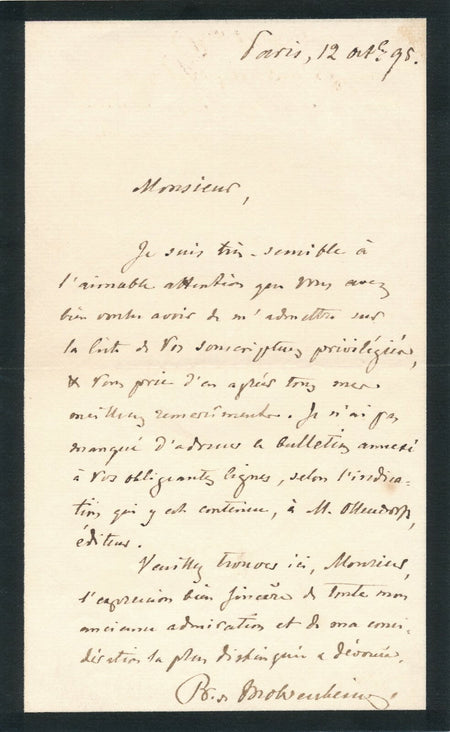 Paris, 12 octbre 95.
Monsieur,
Je suis très-sensible à
l'aimable attention que vous avez
bien voulu avoir de m'admettre sur
la liste de vos souscripteurs privilégiés,
& vous prie d'en agréer tous mes
meilleurs remerciments. Je n'ai pas
manqué d'adresser le bulletin annexé
à vos obligeantes lignes, selon l'indica-
tion qui y est contenue, à M. Ollendorff,
éditeur.
Veuillez trouver ici, Monsieur,
l'expression bien sincère de toute mon
ancienne admiration et de ma consi-
dération la plus distinguée & dévouée.